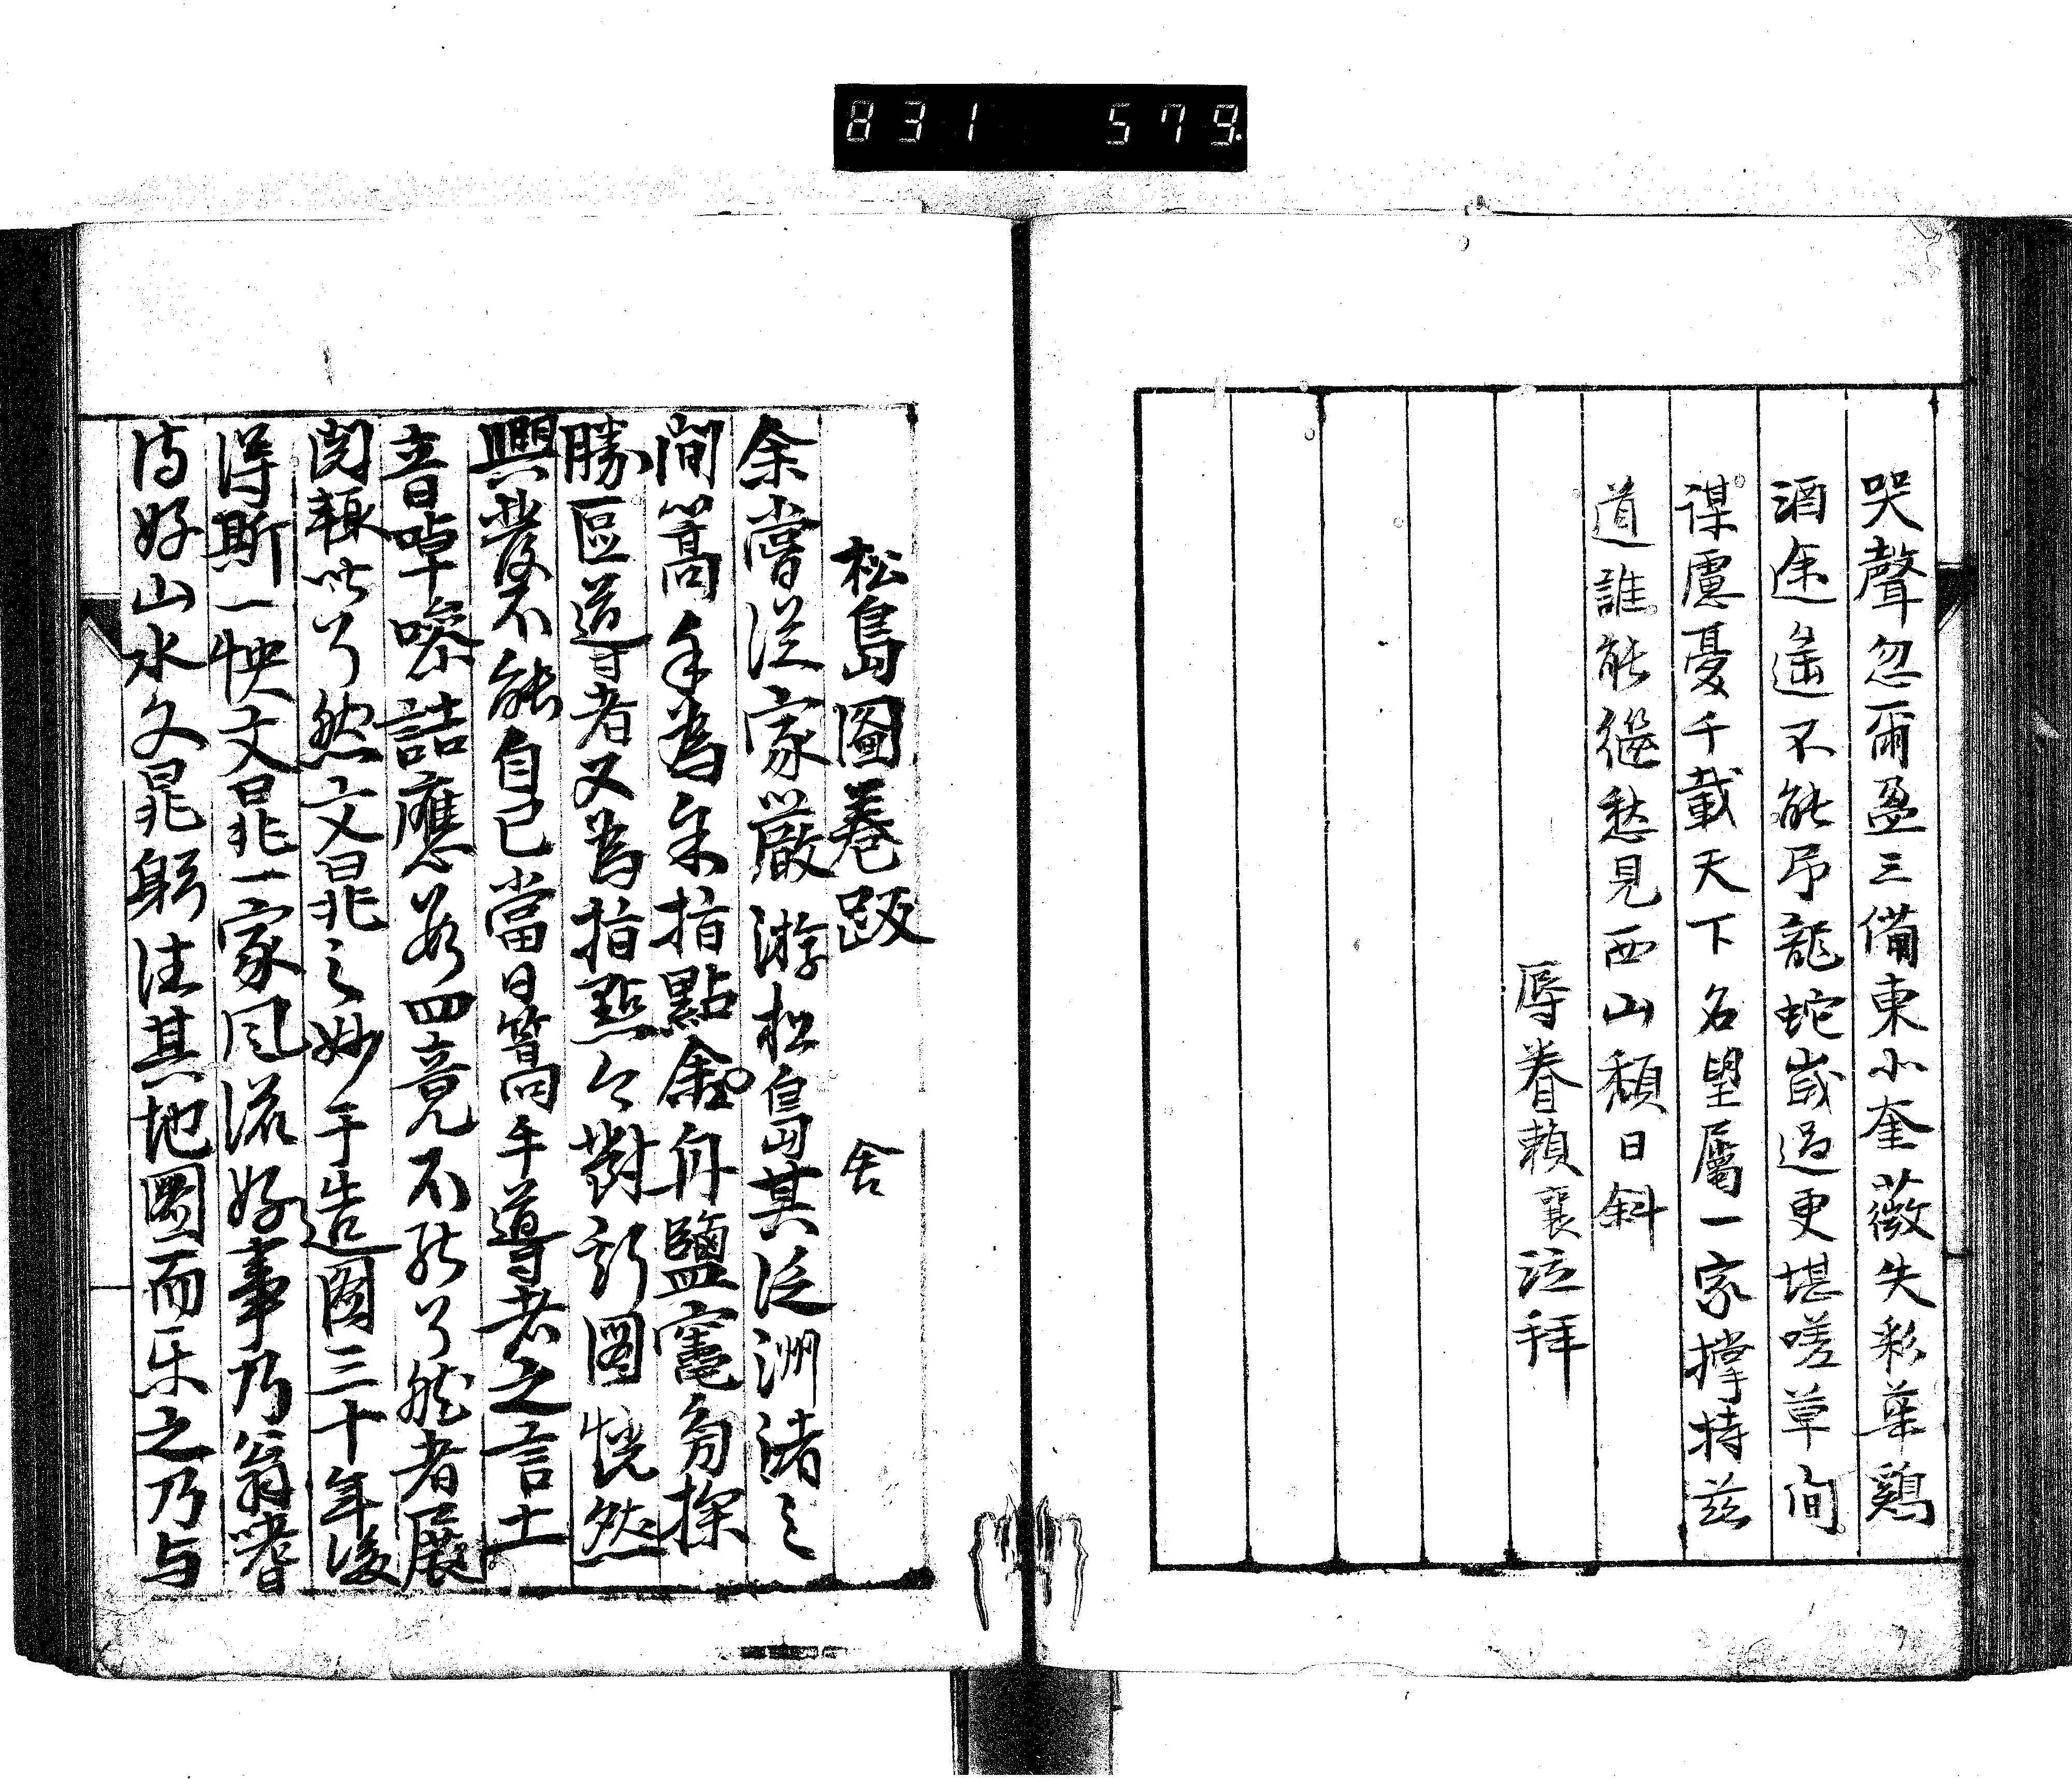 831 579
哭聲忽爾盈三備東小奎薇失彩華鷄
酒途遙不能弔龍蛇歳過更堪嗟草間
謀慮憂千載天下名望屬一家撐持茲
道誰能繼愁見西山頽日斜
辱眷頼襄泣拜
松島圖巻跋 舎
余嘗従家嚴游松島其泛洲渚之
間篙手為余指點舟鹽竈旁探
勝區導者又為指點今對圖恍然
興發不能自已當日篙手導者之言土
音啅嘹詰應数四竟不能了然者展
閲輙以了然文晁之妙手造圖三十年後
得斯一快文晁一家風流好事乃翁嗜
詩好山水文晁躬往其地圖而乐之乃与